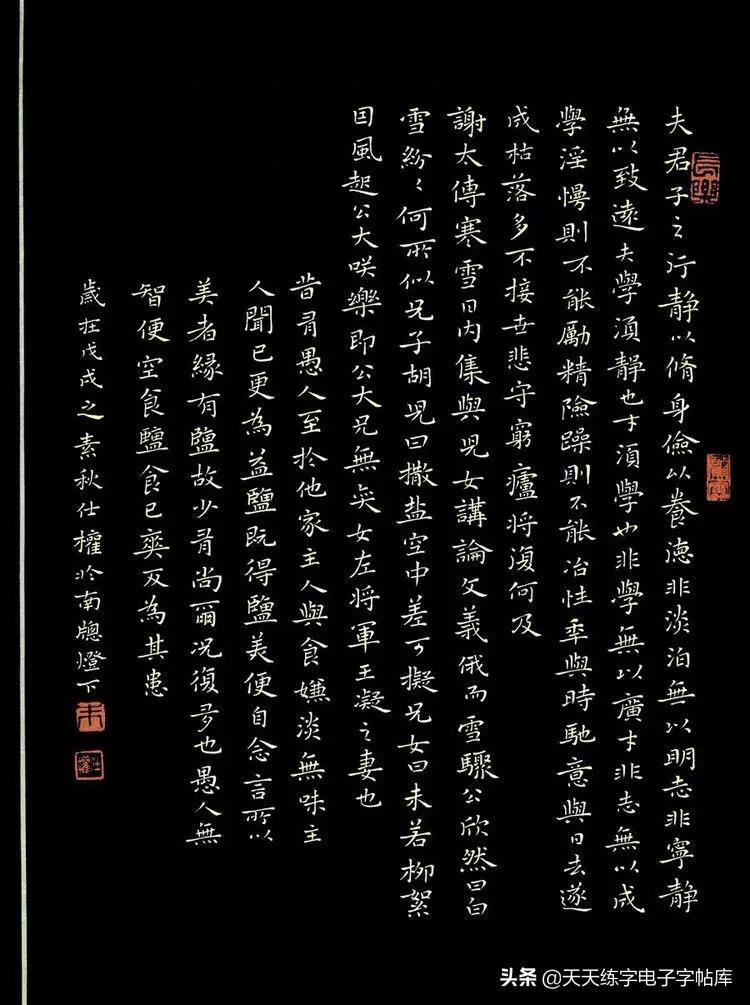 夫君子之行静以脩身儉以養德非淡泊無以明志非寧静
無以致遠夫學須静也才須學也非學無以廣才非志無以成
學淫慢則不能勵精險躁則不能冶性年與時馳意與日去遂
成枯落多不接世悲守窮廬将復何及
謝太傅寒雪日内集與兒女講論文義俄而雪驟公欣然曰白
雪紛々何所似兄子胡兒曰撒盐空中差可擬兄女曰未若柳絮
因風起公大咲樂即公大兄無奕女左将軍王凝之妻也
昔有愚人至於他家主人與食嫌淡無味主
人聞已更為益鹽既得鹽美便自念言所以
美者緣有鹽故少有尚爾况復多也愚人無
智便空食鹽食已爽反為其患
歲在戊戌之素秋仕權於南牕燈下
長樂
头条 @天天练字电子字帖库